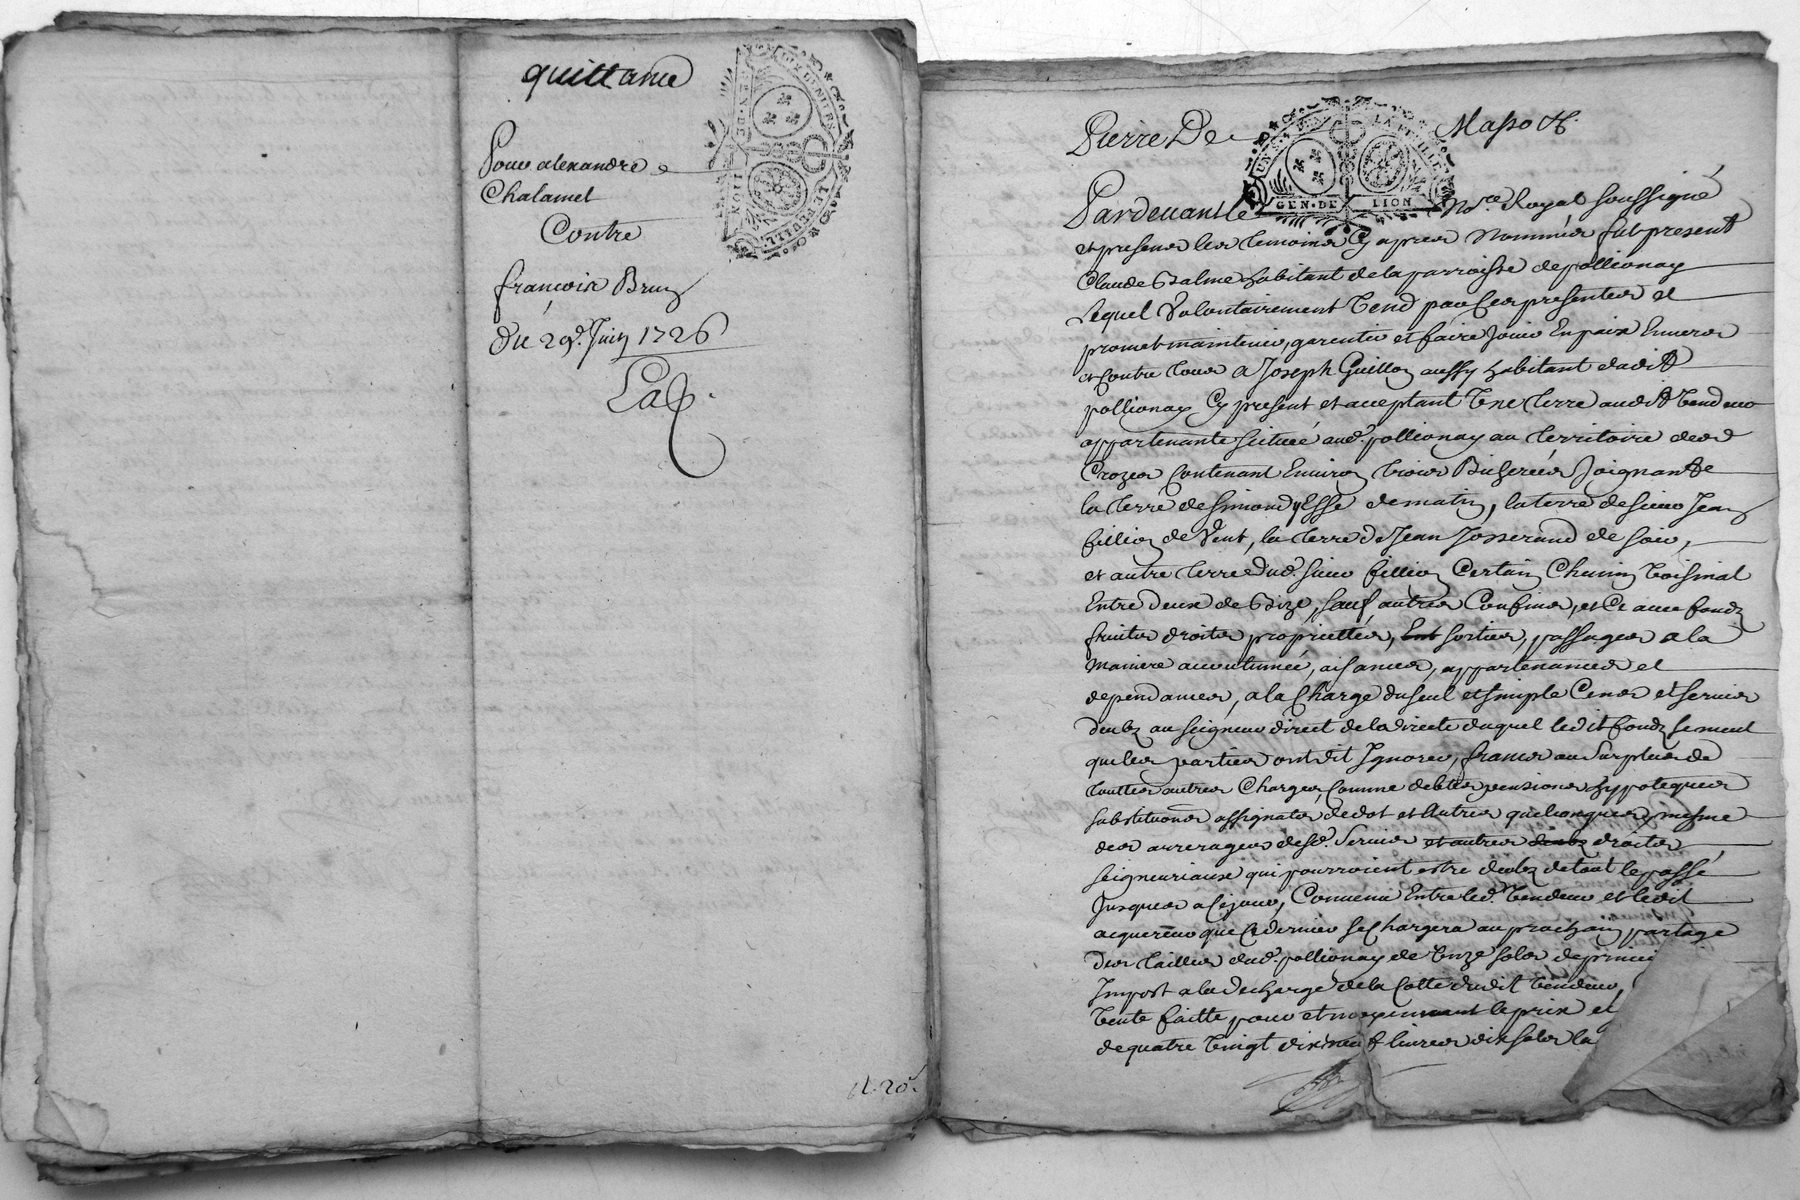 quittance
Pour alexandre
Chalamel
Contre
francoix Brun
Du 29e. Juin 1726
GEN. DE LION
Pierre De Masso &c.
GEN. DE LION
Pardevant le no.re Royal soussigné
et presence les temoins cy apres nommés fut present
Claude Balme habitant de la parroisse de pollionay
Lequel Volontairement Vend par ces presentes et
promet maintenir, garentir et faire Jouir En paix Envers
et Contre tous a Joseph Guillon aussy habitant dudit
pollionay Cy present et acceptant Une terre audit Vendeur
appartenante scituée aud. pollionay au territoire des
Crozes Contenant Environ trois Bicherées Joignant
la terre de simond ysse de matin, la terre de sieur Jean
fillion de Vent, la terre de Jean Josserand de soir,
et autre terre dud. sieur fillion Certain Chemin Voisinal
Entre deux de Bize, sauf autres Confins, et Ce avec fondz
fruits droits proprietés, Ent sorties, passages a la
maniere accoutumée, aisances, appartenances et
dependances, a la Charge du seul et simple Cens et servis
deubz au seigneur direct de la directe duquel ledit fondz se meut
que les parties ont dit Ignorer, francs au surplus de
touttes autres Charges, Comme debtes pensions hypoteques
substitutions assignats de dot et Autres quelconques mesme
des arrerages desd. Servis et autres deubz droits
seigneuriaux qui pourroient estre deubz de tout le passé
Jusques a Ce jour, Convenu Entre led. Vendeur et ledit
acquereur que Ce dernier se Chargera au prochain partage
des tailles dud. pollionay de Unze sols de princi
Impost a la decharge de la Cotte dudit Vendeur,
Vente faitte pour et moyennant le prix et
de quatre Vingt dix neuf livres dix sols la